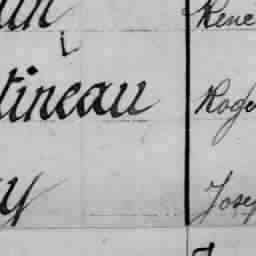 un René
tineau Roge
y Josep